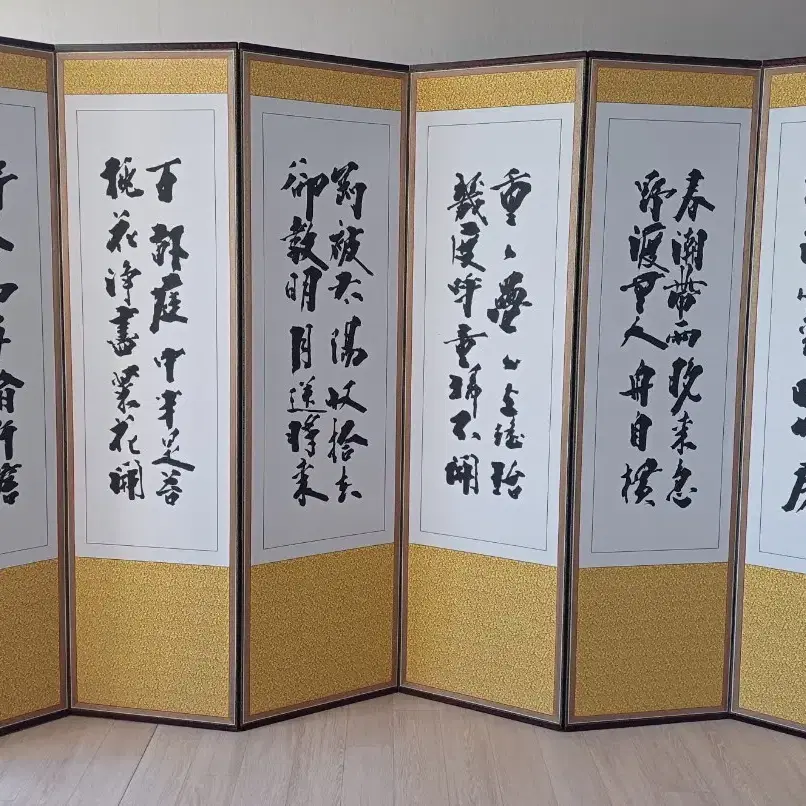 春潮帶雨晚來急
野渡無人舟自橫
重々疊々上瑤臺
幾度呼童掃不開
剛被太陽收拾去
卻敎明月送將來
百畝庭中半是苔
桃花淨盡菜花開